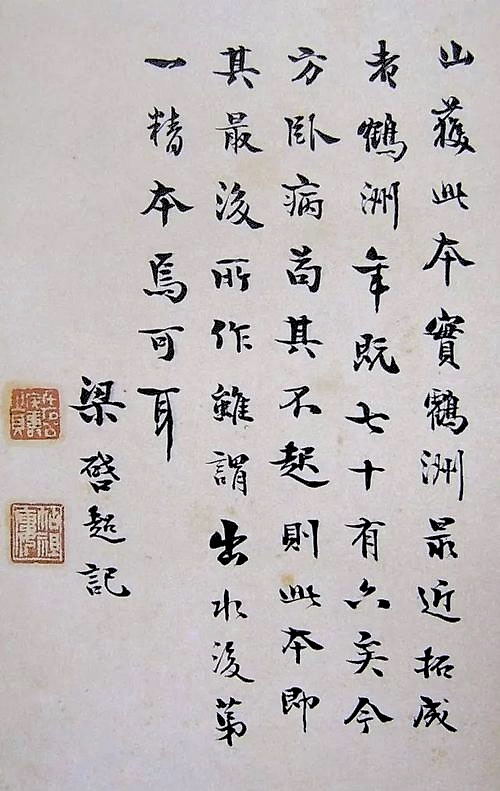 山獲此本實鶴洲最近拓成
者鶴洲年既七十有六矣今
方臥病茍其不起則此本即
其最後所作雖謂出水後第
一精本焉可耳
梁啓超記